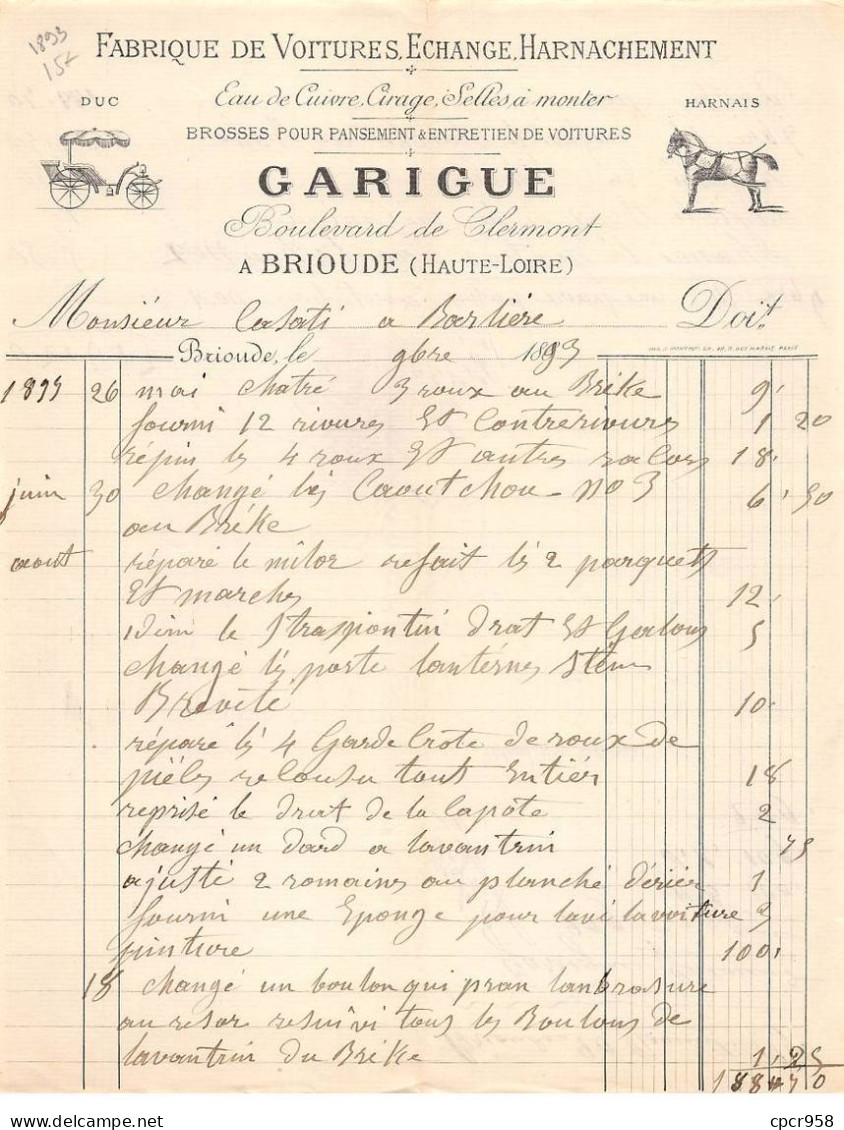 1893
15€
FABRIQUE DE VOITURES, ECHANGE, HARNACHEMENT
DUC
Eau de Cuivre, Cirage, Selles à monter
HARNAIS
BROSSES POUR PANSEMENT & ENTRETIEN DE VOITURES
GARIGUE
Boulevard de Clermont
A BRIOUDE (HAUTE-LOIRE)
Monsiéur Casati a Barlière Doit
Brioude, le 9bre 1893
1893 26 mai Chatré 3 roux au Brèke 9
fourni 12 rivures Et Contrerivures 1 20
répin lés 4 roux Et autres 18
juin 30 Changé lés Caoutchou No 3 6 50
au Bréke
aout réparé le milor refait lés 2 parquets
Et marches 12
idim le Strapontin drat Et Galons 5
Changé lés porte lantérnes
Brevete 10
réparé lés 4 Garde Crote de roux de
tout Entiér 18
reprisé le drat de la Capote 2
changé un dard a lavantrin 75
ajusté 2 romaines au planché dériér 1
fourni une Eponge pour lavé la voiture 3
pinture 100
18 changé un boulon qui pran lanbrasure
au resor resuivi tous les Boulons de
lavantrin du Brèke 1 25
188 70
cpcr958